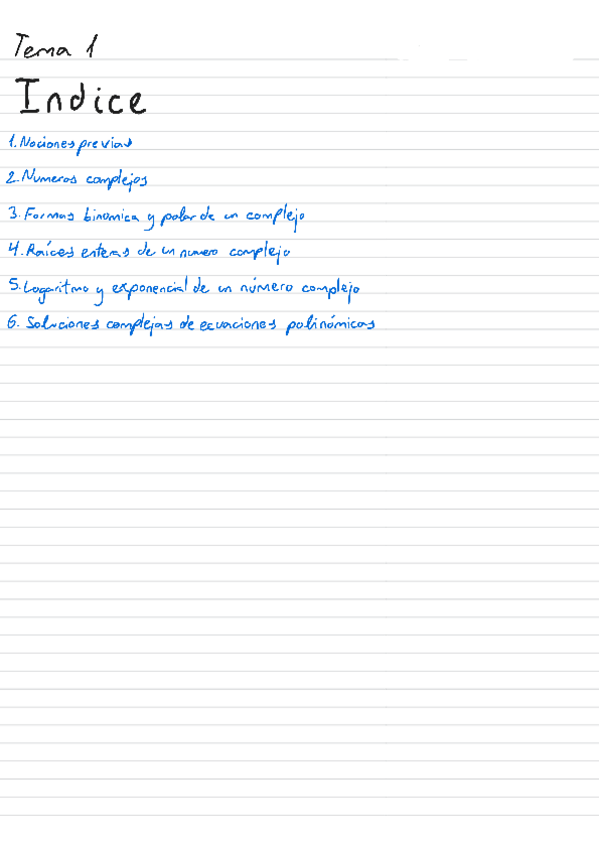 Tema 1
Indice
1. Nociones previas
2. Numeros complejos
3. Formas binomica y polar de un complejo
4. Raíces enteras de un numero complejo
5. Logaritmo y exponencial de un número complejo
6. Soluciones complejas de ecuaciones polinómicas